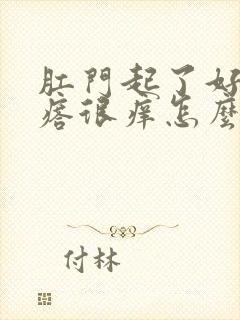 肛門起了好
瘩很痒怎麼
付林